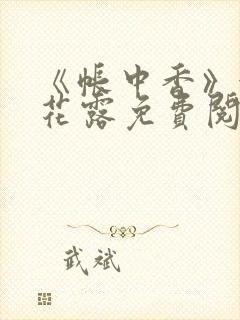 《帐中香》
花露免费阅
武斌